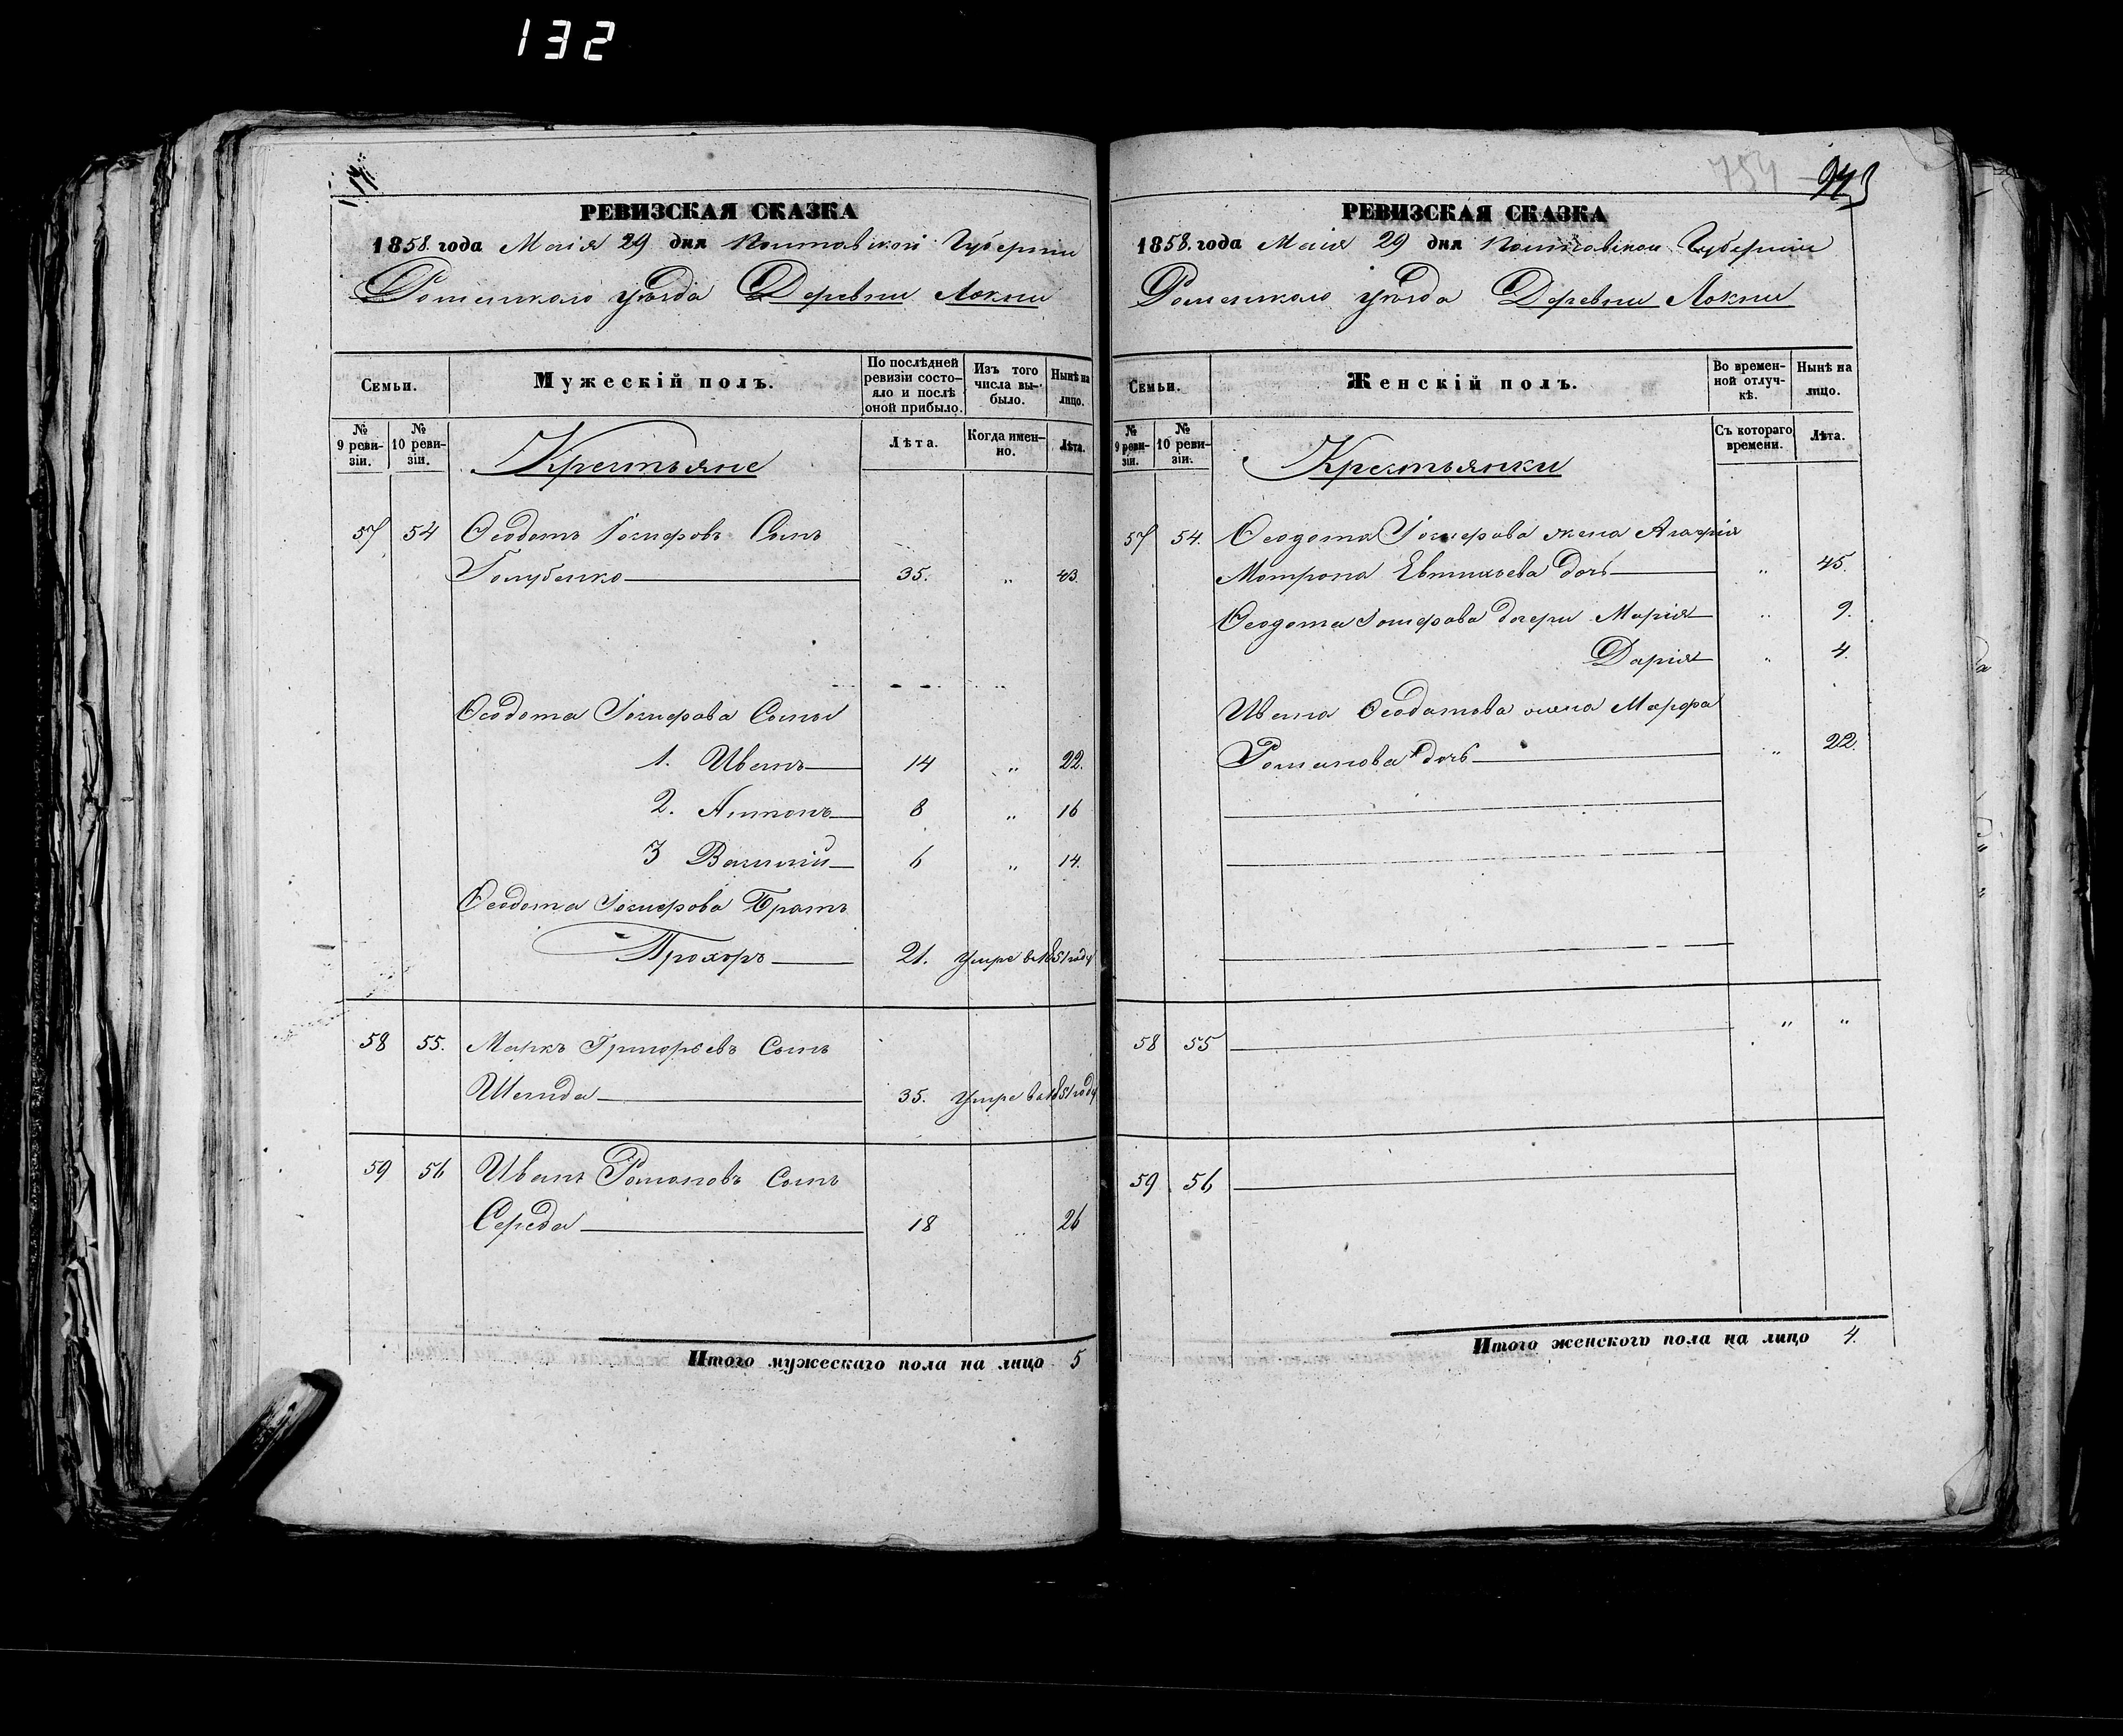 132
РЕВИЗСКАЯ СКАЗКА
1858. года Маія 29 дня Полтавской Губерніи
Роменскаго уѣзда Деревни Локни
Семьи.
Мужескій полъ.
По послѣдней ревизіи состояло и послѣ оной прибыло.
Изъ того числа выбыло.
Нынѣ на лицо.
№ 9 ревизіи.
№ 10 ревизіи.
Крестьяне
Лѣта.
Когда именно.
Лѣта.
57 54 Ѳеодотъ Іосифовъ Сынъ
Голубенко 35. „ 43.
Ѳеодота Іосифова Сыны
1. Иванъ 14 „ 22.
2. Антонъ 8 „ 16
3 Василій 6 „ 14.
Ѳеодота Іосифова Братъ
Прохоръ 21. Умре въ 1851 году
58 55. Маркъ Григорьевъ Сынъ
35. Умре въ 1851 году
59 56 Иванъ Романовъ Сынъ
Середа 18 „ 26
Итого мужескаго пола на лицо 5
754
РЕВИЗСКАЯ СКАЗКА
1858. года Маія 29 дня Полтавской Губерніи
Роменскаго уѣзда Деревни Локни
Семьи.
Женскій полъ.
Во временной отлучкѣ.
Нынѣ на лицо.
№ 9 ревизіи.
№ 10 ревизіи.
Крестьянки
Съ котораго времени.
Лѣта.
57 54. Ѳеодота Іосифова жена
Мотрона Евтихіева дочь „ 45.
Ѳеодота Іосифова дочери Марія „ 9.
Дарія „ 4.
Ивана Ѳеодотова жена Марфа
Романова дочь „ 22.
58 55 „ „
59 56
Итого женского пола на лицо 4.